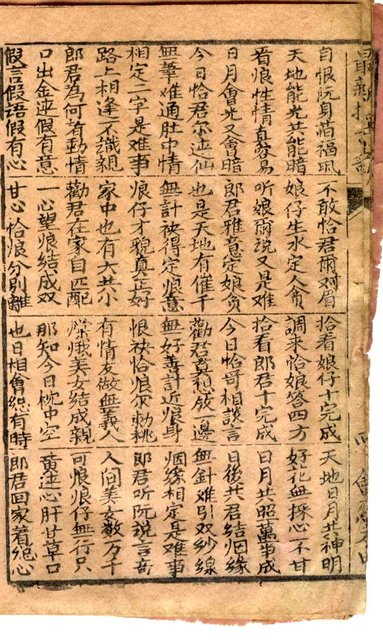 最新採
自恨阮身葫福氣 不敢恰君爾對眉 恰看娘仔十完成 天地日月共神明
天地能光共能暗 娘仔生水定人貪 調來恰娘答四方 好花無採心不甘
看娘性情真容易 听娘爾說又是難 恰看郎君十完成 日月共照萬事成
日月會光又會暗 郎君雅意定娘貪 今日恰哥相談言 日後共君結因緣
今日恰君示迸仙 也是天地有催千 勸君真放一邊 無針難引双紗線
無筆難通肚中情 無計被得定娘意 無好善計近娘身 姻緣相定是難事
相定二字是難事 娘仔才貌真正好 恨袂恰娘你勅桃 郎君听阮說言奇
路上相逢不識親 家中也有大共小 有情友做無義人 人间美女數万千
郎君為何有動情 勸君在家自匹配 嫦娥美女結成親 可恨娘仔無行只
口出金假有意 一心望娘結成双 那知今日枕中空 黃連心肝甘草口
假言假語假有心 甘心恰娘分別離 也日相會怨有時 郎君回家着絕心